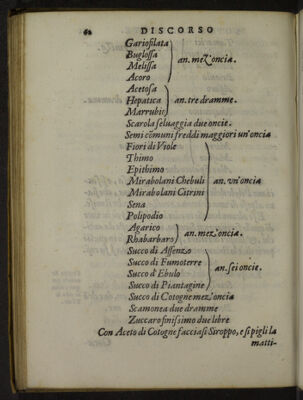 62 DISCORSO
Gariofilata
Buglossa
Melissa
Acoro
an. mez'oncia.
Acetosa
Hepatica
Marrubio
an. tre dramme.
Scarola seluaggia due oncie.
Semi cōmuni freddi maggiori un'oncia
Fiori di Viole
Thimo
Epithimo
Mirabolani Chebuli
Mirabolani Citrini
Sena
Polipodio
an. vn'oncia
Agarico
Rhabarbaro
an. mez'oncia.
Succo di Assenzo
Succo di Fumoterre
Succo d'Ebulo
Succo di Piantagine
an. sei oncie.
Succo di Cotogne mez'oncia
Scamonea due dramme
Zuccaro finissimo due libre
Con Aceto di Cotogne facciasi Siroppo, e si pigli la
matti-